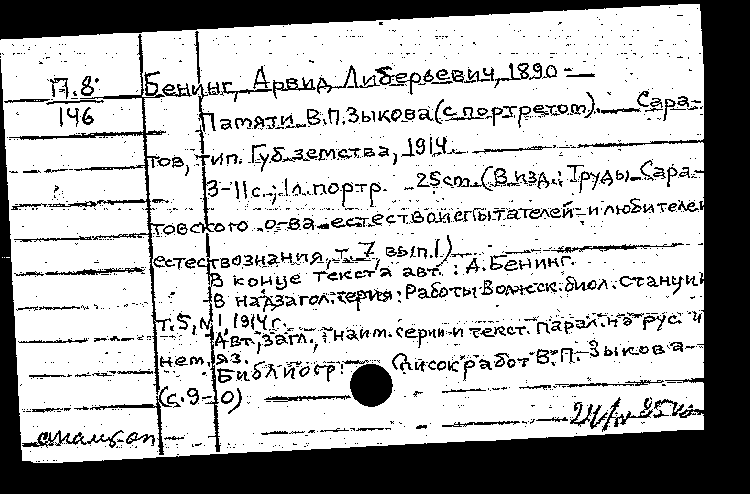 П.8.
146
Бенинг, Арвид Либерьевич, 1890-
Памяти В.П.Зыкова (с портретом). Сара-
тов, тип. Губ.земства, 1914.
3-11с.; 1л.портр. 25cm. (В изд.: Труды Сара-
товского о-ва естествоиспытателей и любителей
естествознания, т. 7, вып.1)
В конце текста авт.: А.Бенинг.
В надзагол. серия: Работы Волжск. биол. станции
т.5, №1, 1914г.
Авт., загл., наим. серии и текст. парал. на рус. и
нем. яз.
Библиогр.: Список работ В.П. Зыкова
(с.9-10)